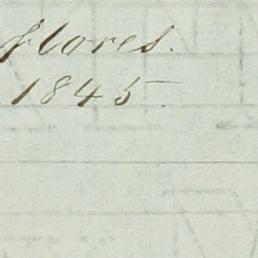 flores.
1845.